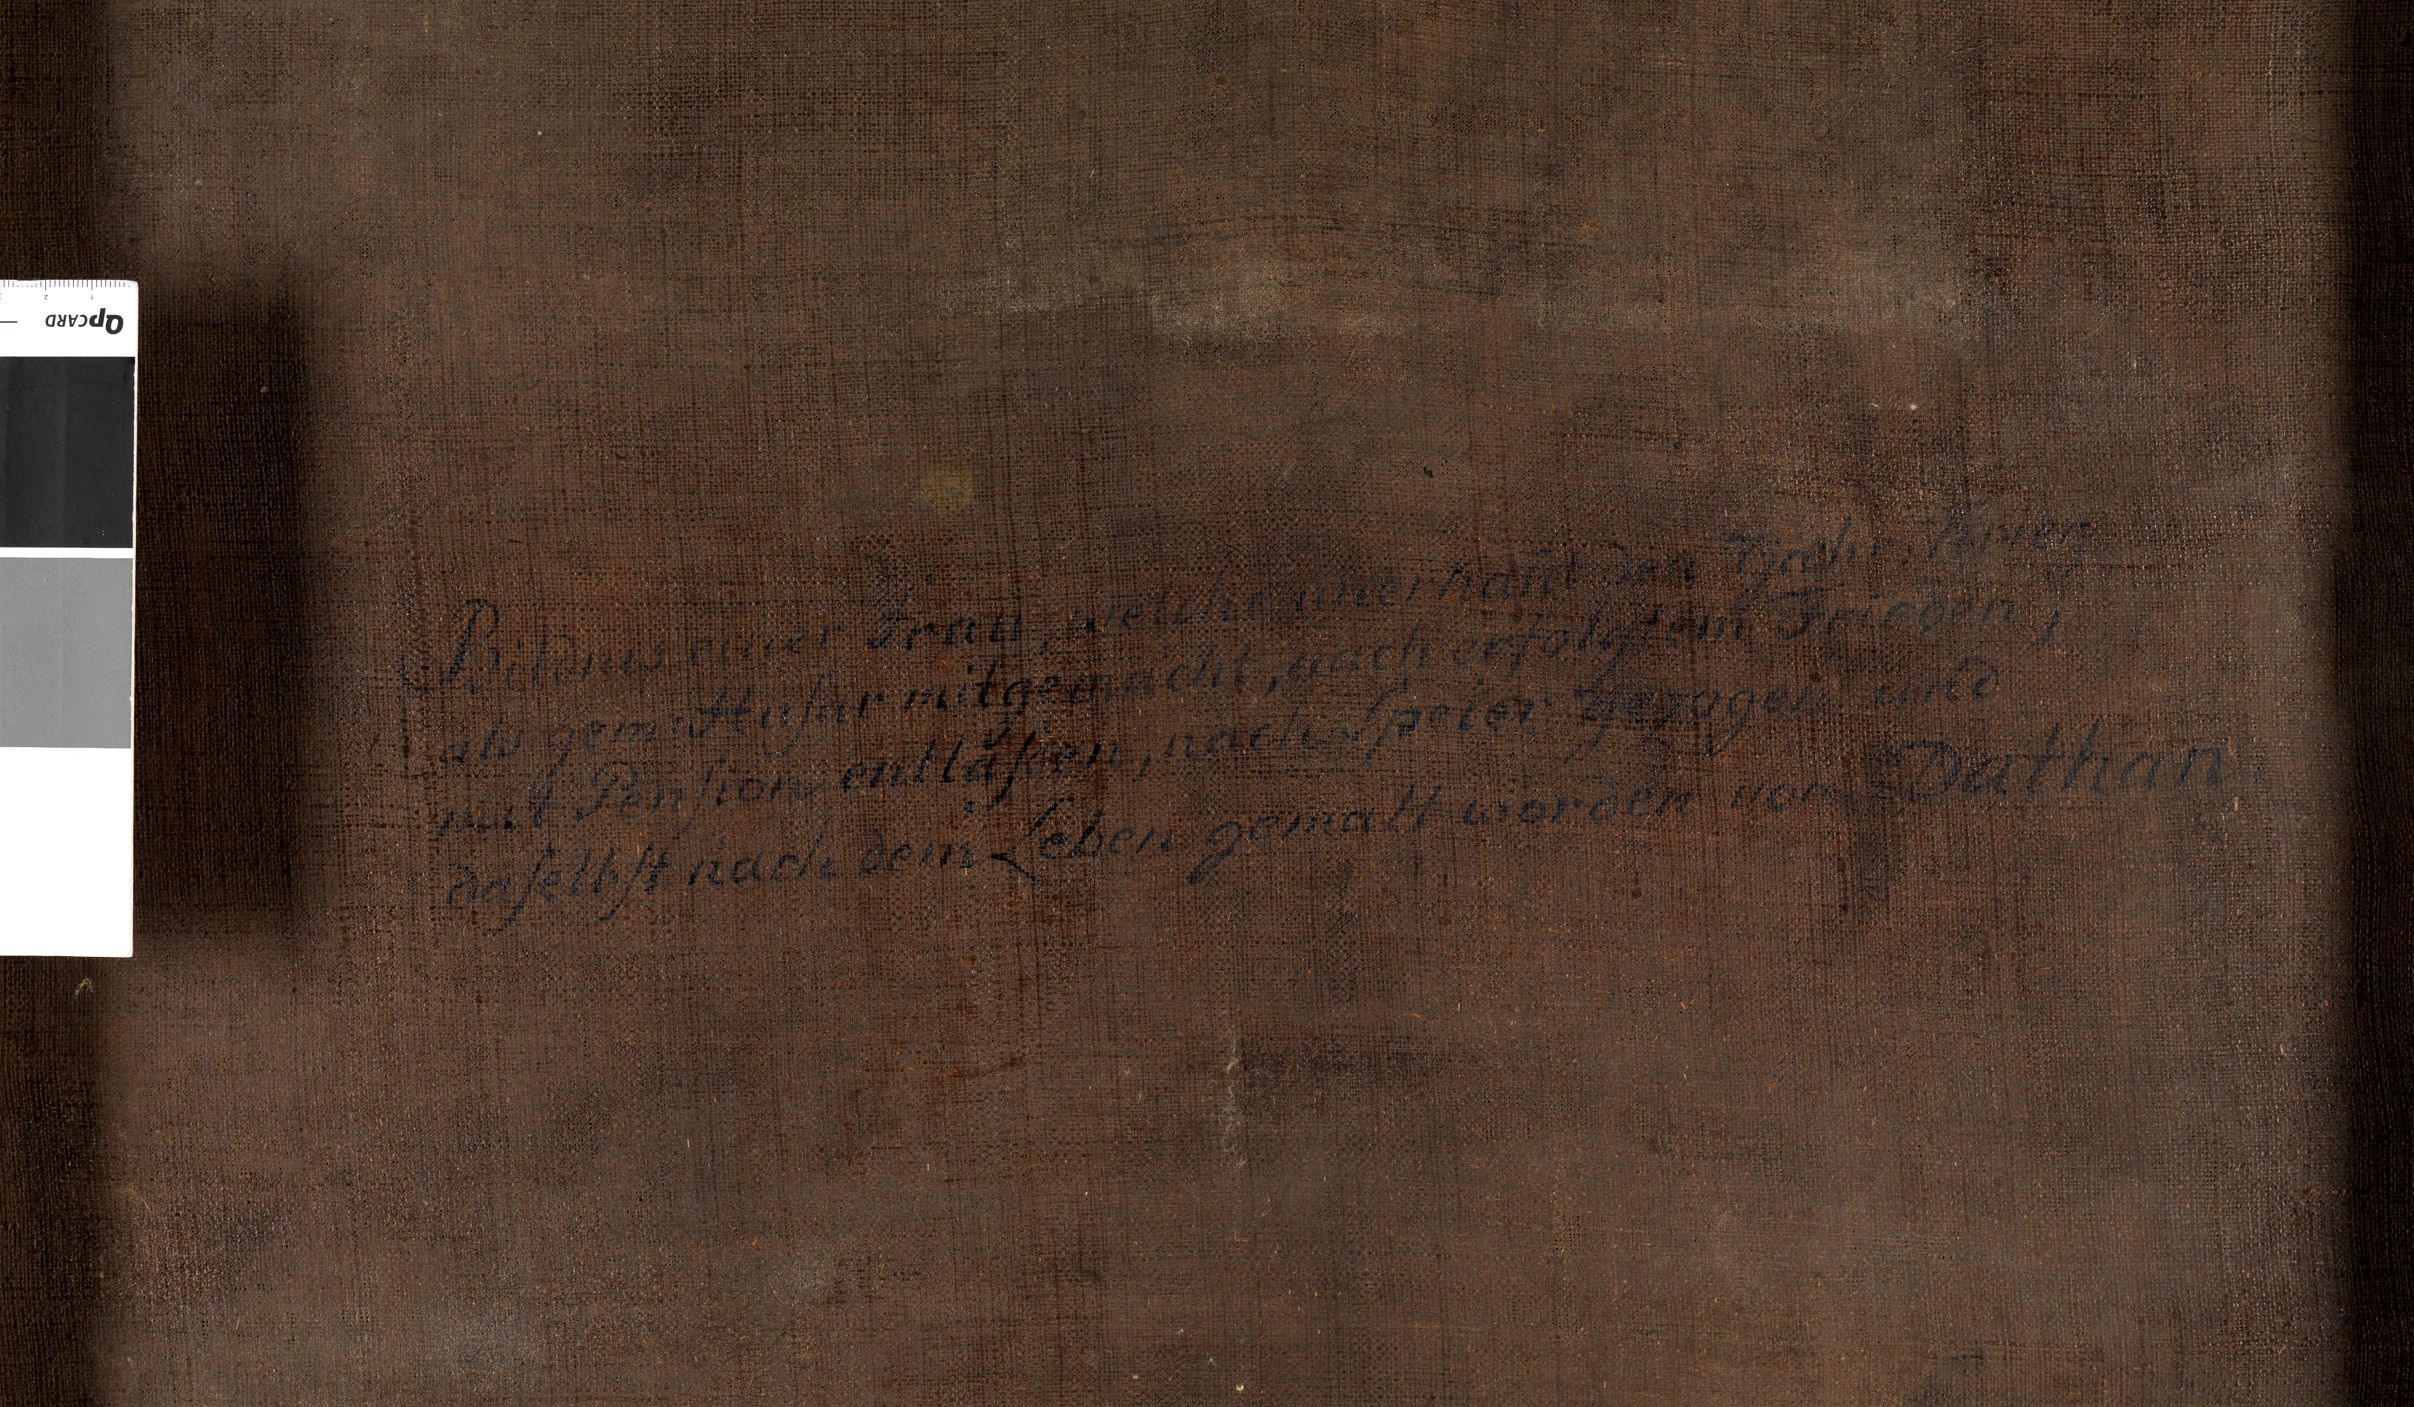 QPCARD
1 2 3
Bildnis einer Frau, welche unerkañt den 7jrehr. Krieg
als gem: Huſar mitgemacht, nach erfolgtem Frieden,
mitt Penſion entlaſsen, nach Speier gezogen und
daſelbſt nach dem Leben gemalt worden von Dathan.